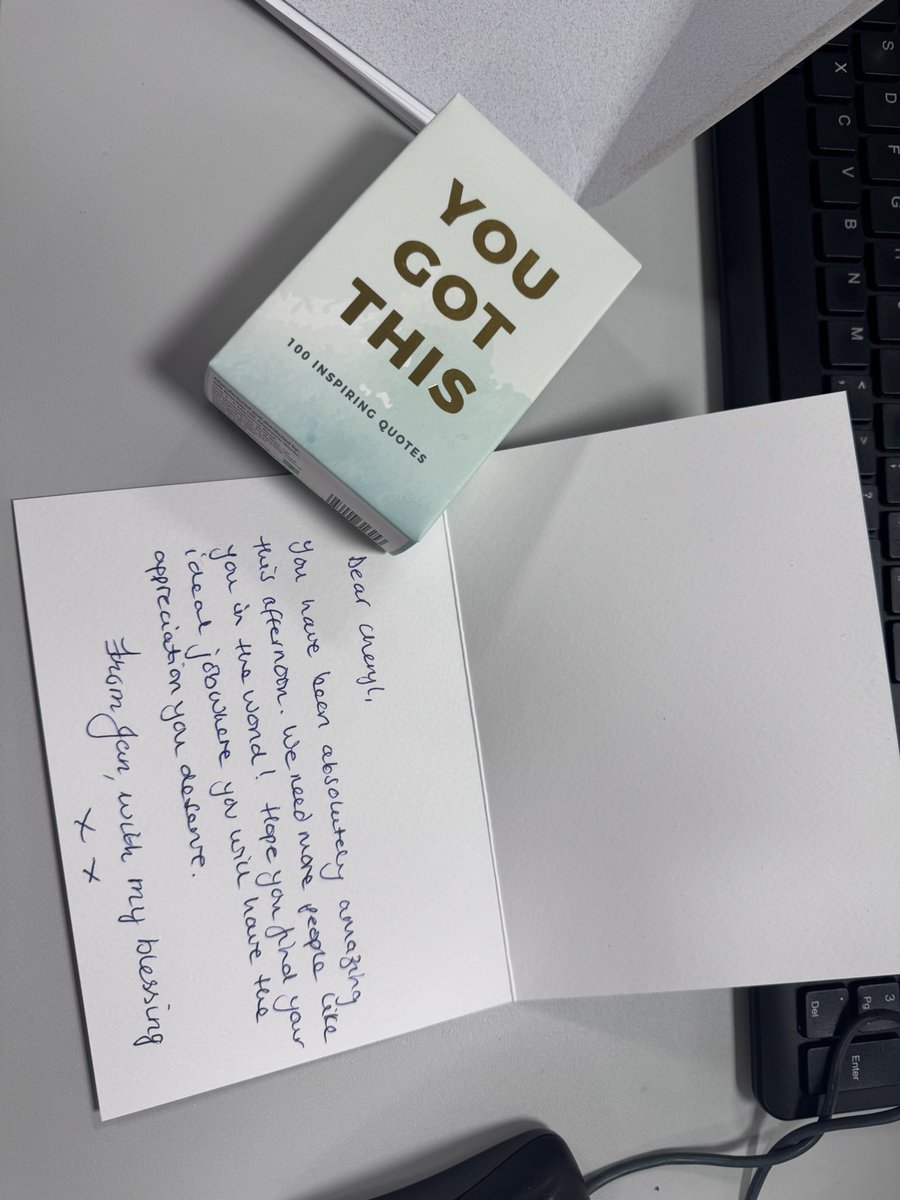 YOU
GOT
THIS
100 INSPIRING QUOTES
Dear Cheryl,
You have been absolutely amazing
this afternoon. We need more people like
you in the world! Hope you find your
ideal job where you will have the
appreciation you deserve.
From Jan, with my blessing
x x
S
X
D
C
F
V
G
B
H
N
M
<
?
3
Pg
.
Del
Enter